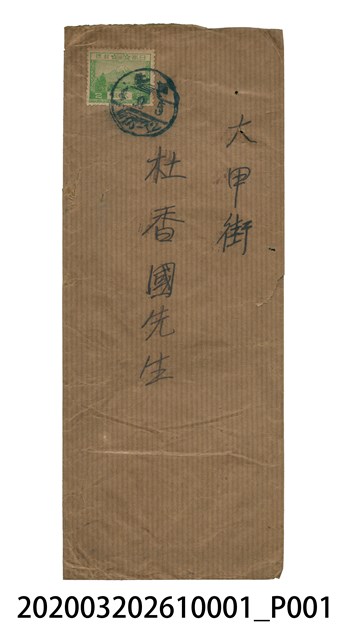 大甲街
杜香國先生
202003202610001_P001